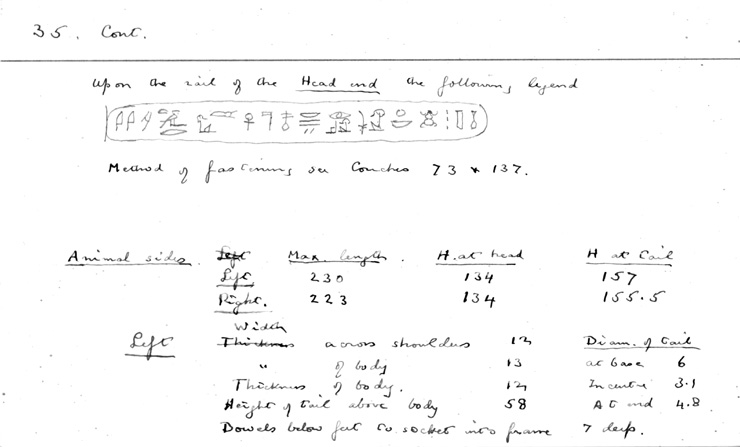 35. Cont.
Upon the rail of the Head end the following legend
Method of fastening see Couches 73 & 137.
Animal sides. Left Max. length. H. at head H at tail
Left 230 134 157
Right. 223 134 155.5
Width
Left Thickness across shoulders 12 Diam. of tail
" of body 13 at base 6
Thickness of body. 12 In centre 3.1
Height of tail above body 58 At end 4.8
Dowels below feet to socket into frame 7 deep.